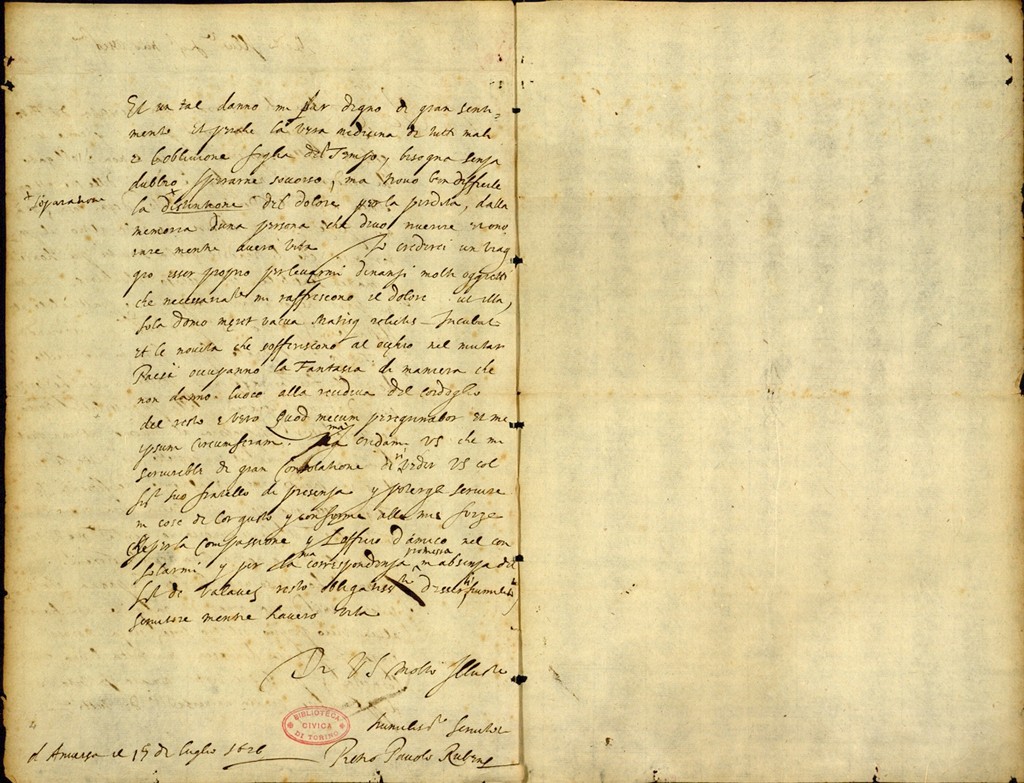 Et un tal danno mi par degno di gran senti=
mento et perche la vera medicina de tutti mali
e l'oblivione figlia del Tempo, bisogna senza
dubbio sperarne soccorso, ma trovo ben difficile
+ separatione
la distinctione del dolore per la perdita, dalla
memoria d'una persona che devo riverire et ono
rare mentre avero vita Io crederei un viag
gio esser proprio per levarmi dinanzi molti oggietti
che necessariate mi raffrescono il dolore ut illa,
sola domo mæret vacua stratisq relictis Incubat
et le novita che s'offeriscono al occhio nel mutar
Paesi occupanno la Fantasia di maniera che
non danno luoco alla recidiva del cordoglio
del resto e vero Quod mecum peregrinabor et me
ipsum circumferam. ma credami VS che mi
servirebbe di gran Consolatione di veder VS col
sigr suo fratello di presenza y potergli servire
in cose di lor gusto y conforme alle mie forze
per la Compassione y l'officio d'amico nel con
solarmi y per la sua correspondenza promessa in absenza del
sigr di Valaves resto obligatiss
servitore mentre havero vita
Di VS molto Illustre
humilisso servitor
Pietro Pauolo Rubens
d'Anversa il 15 di luglio 1626
BIBLIOTECA
CIVICA
DI TORINO